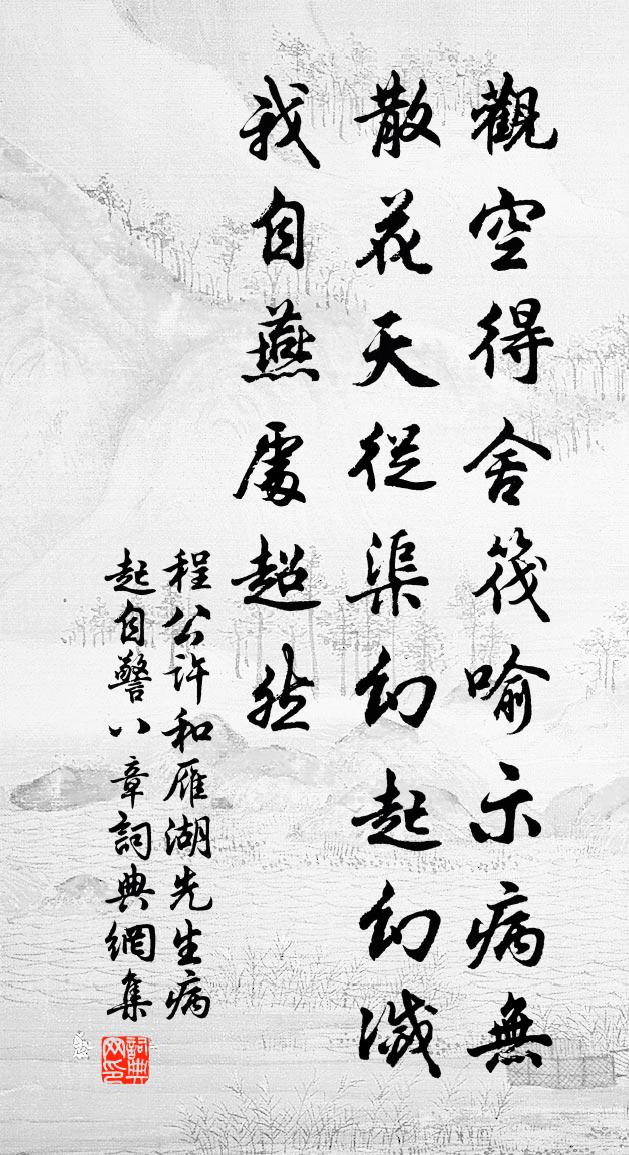 觀空得舍筏喻示病無
散花天從渠幻起幻滅
我自燕處超然
程公許和雁湖先生病
起自警八章詞典網集
詞典网印